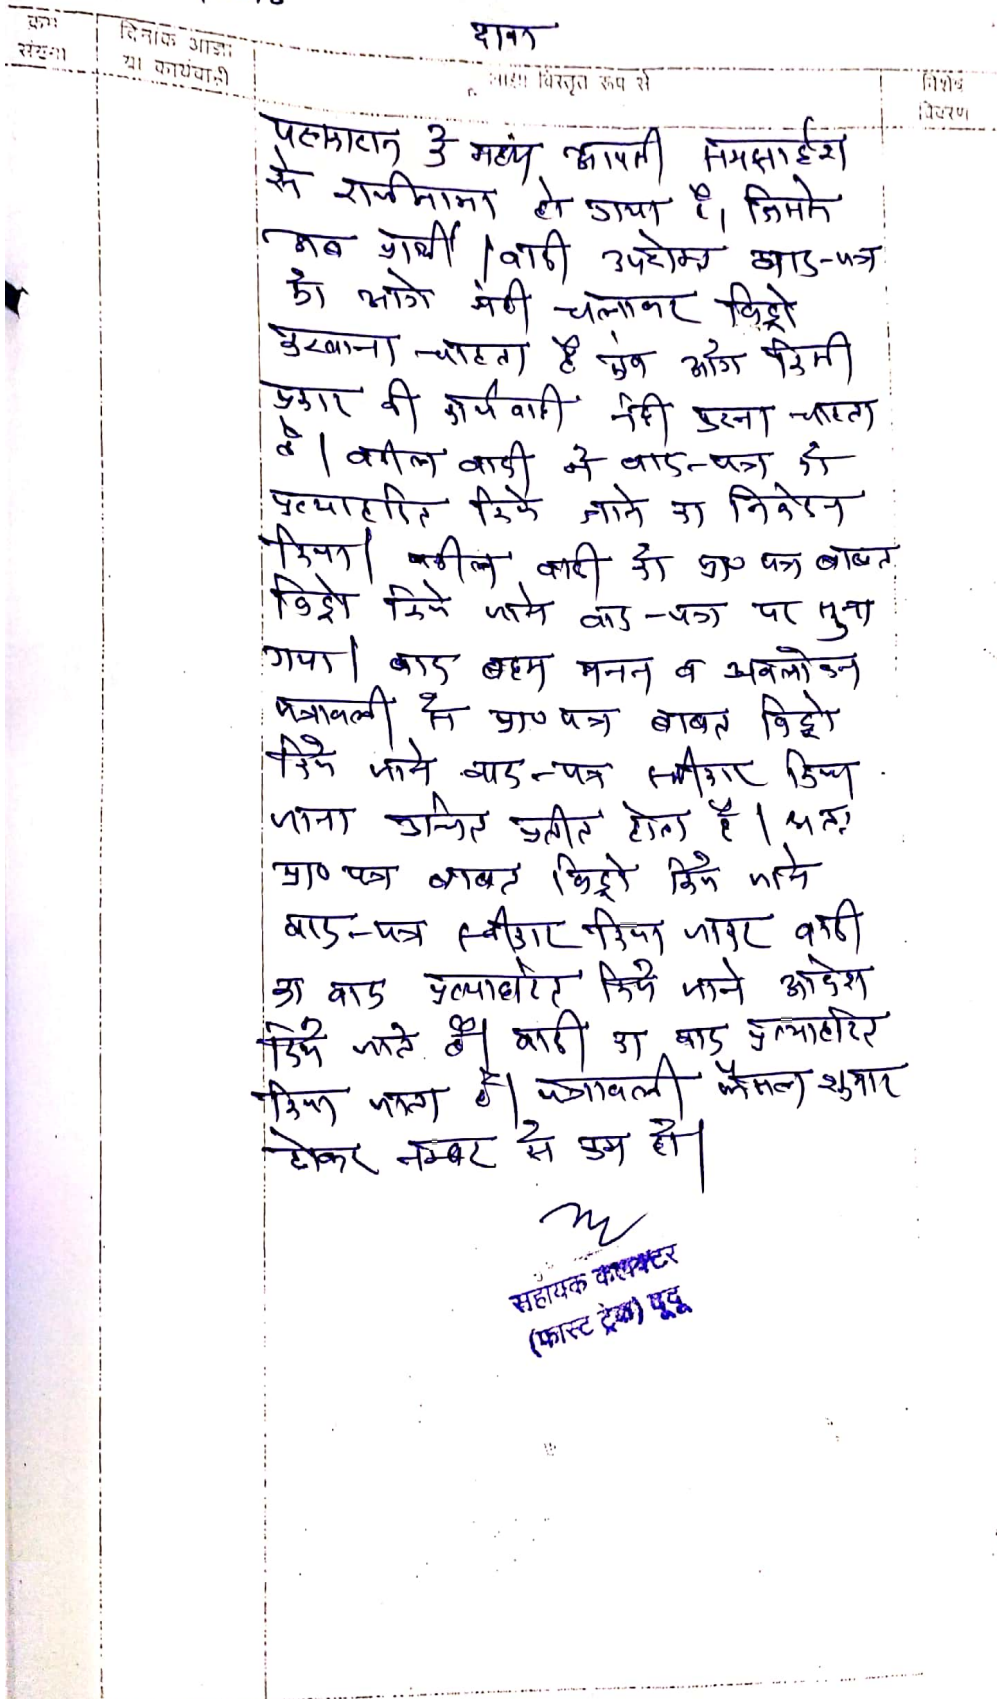 दावा
क्रम
संख्या
दिनांक आज्ञा
या कार्यवाही
आज्ञा विस्तृत रूप से
विशेष
विवरण
पक्षकारान के मध्य आपसी समझाईश
से राजीनामा हो गया है, जिससे
अब प्रार्थी / वादी उपरोक्त वाद-पत्र
को आगे नही चलाकर विड्रो
करवाना चाहता है एंव आगे किसी
प्रकार की कार्यवाही नही करना चाहता
है। वकील वादी ने वाद-पत्र को
प्रत्याहरित किये जाने का निवेदन
किया। वकील वादी को प्रा० पत्र बाबत
विड्रो किये जाने वाद-पत्र पर सुना
गया। बाद बहस मनन व अवलोकन
पत्रावली से प्रा० पत्र बाबत विड्रो
किये जाने वाद-पत्र स्वीकार किया
जाना उचित प्रतीत होता है। अतः
प्रा० पत्र बाबत विड्रो किये जाने
वाद-पत्र स्वीकार किया जाकर वादी
का वाद प्रत्याहरित किये जाने आदेश
दिये जाते है। वादी का वाद प्रत्याहरित
किया जाता है। पत्रावली फैसल शुमार
होकर नम्बर से कम हो।
सहायक कलक्टर
(फास्ट ट्रेक) दूदू